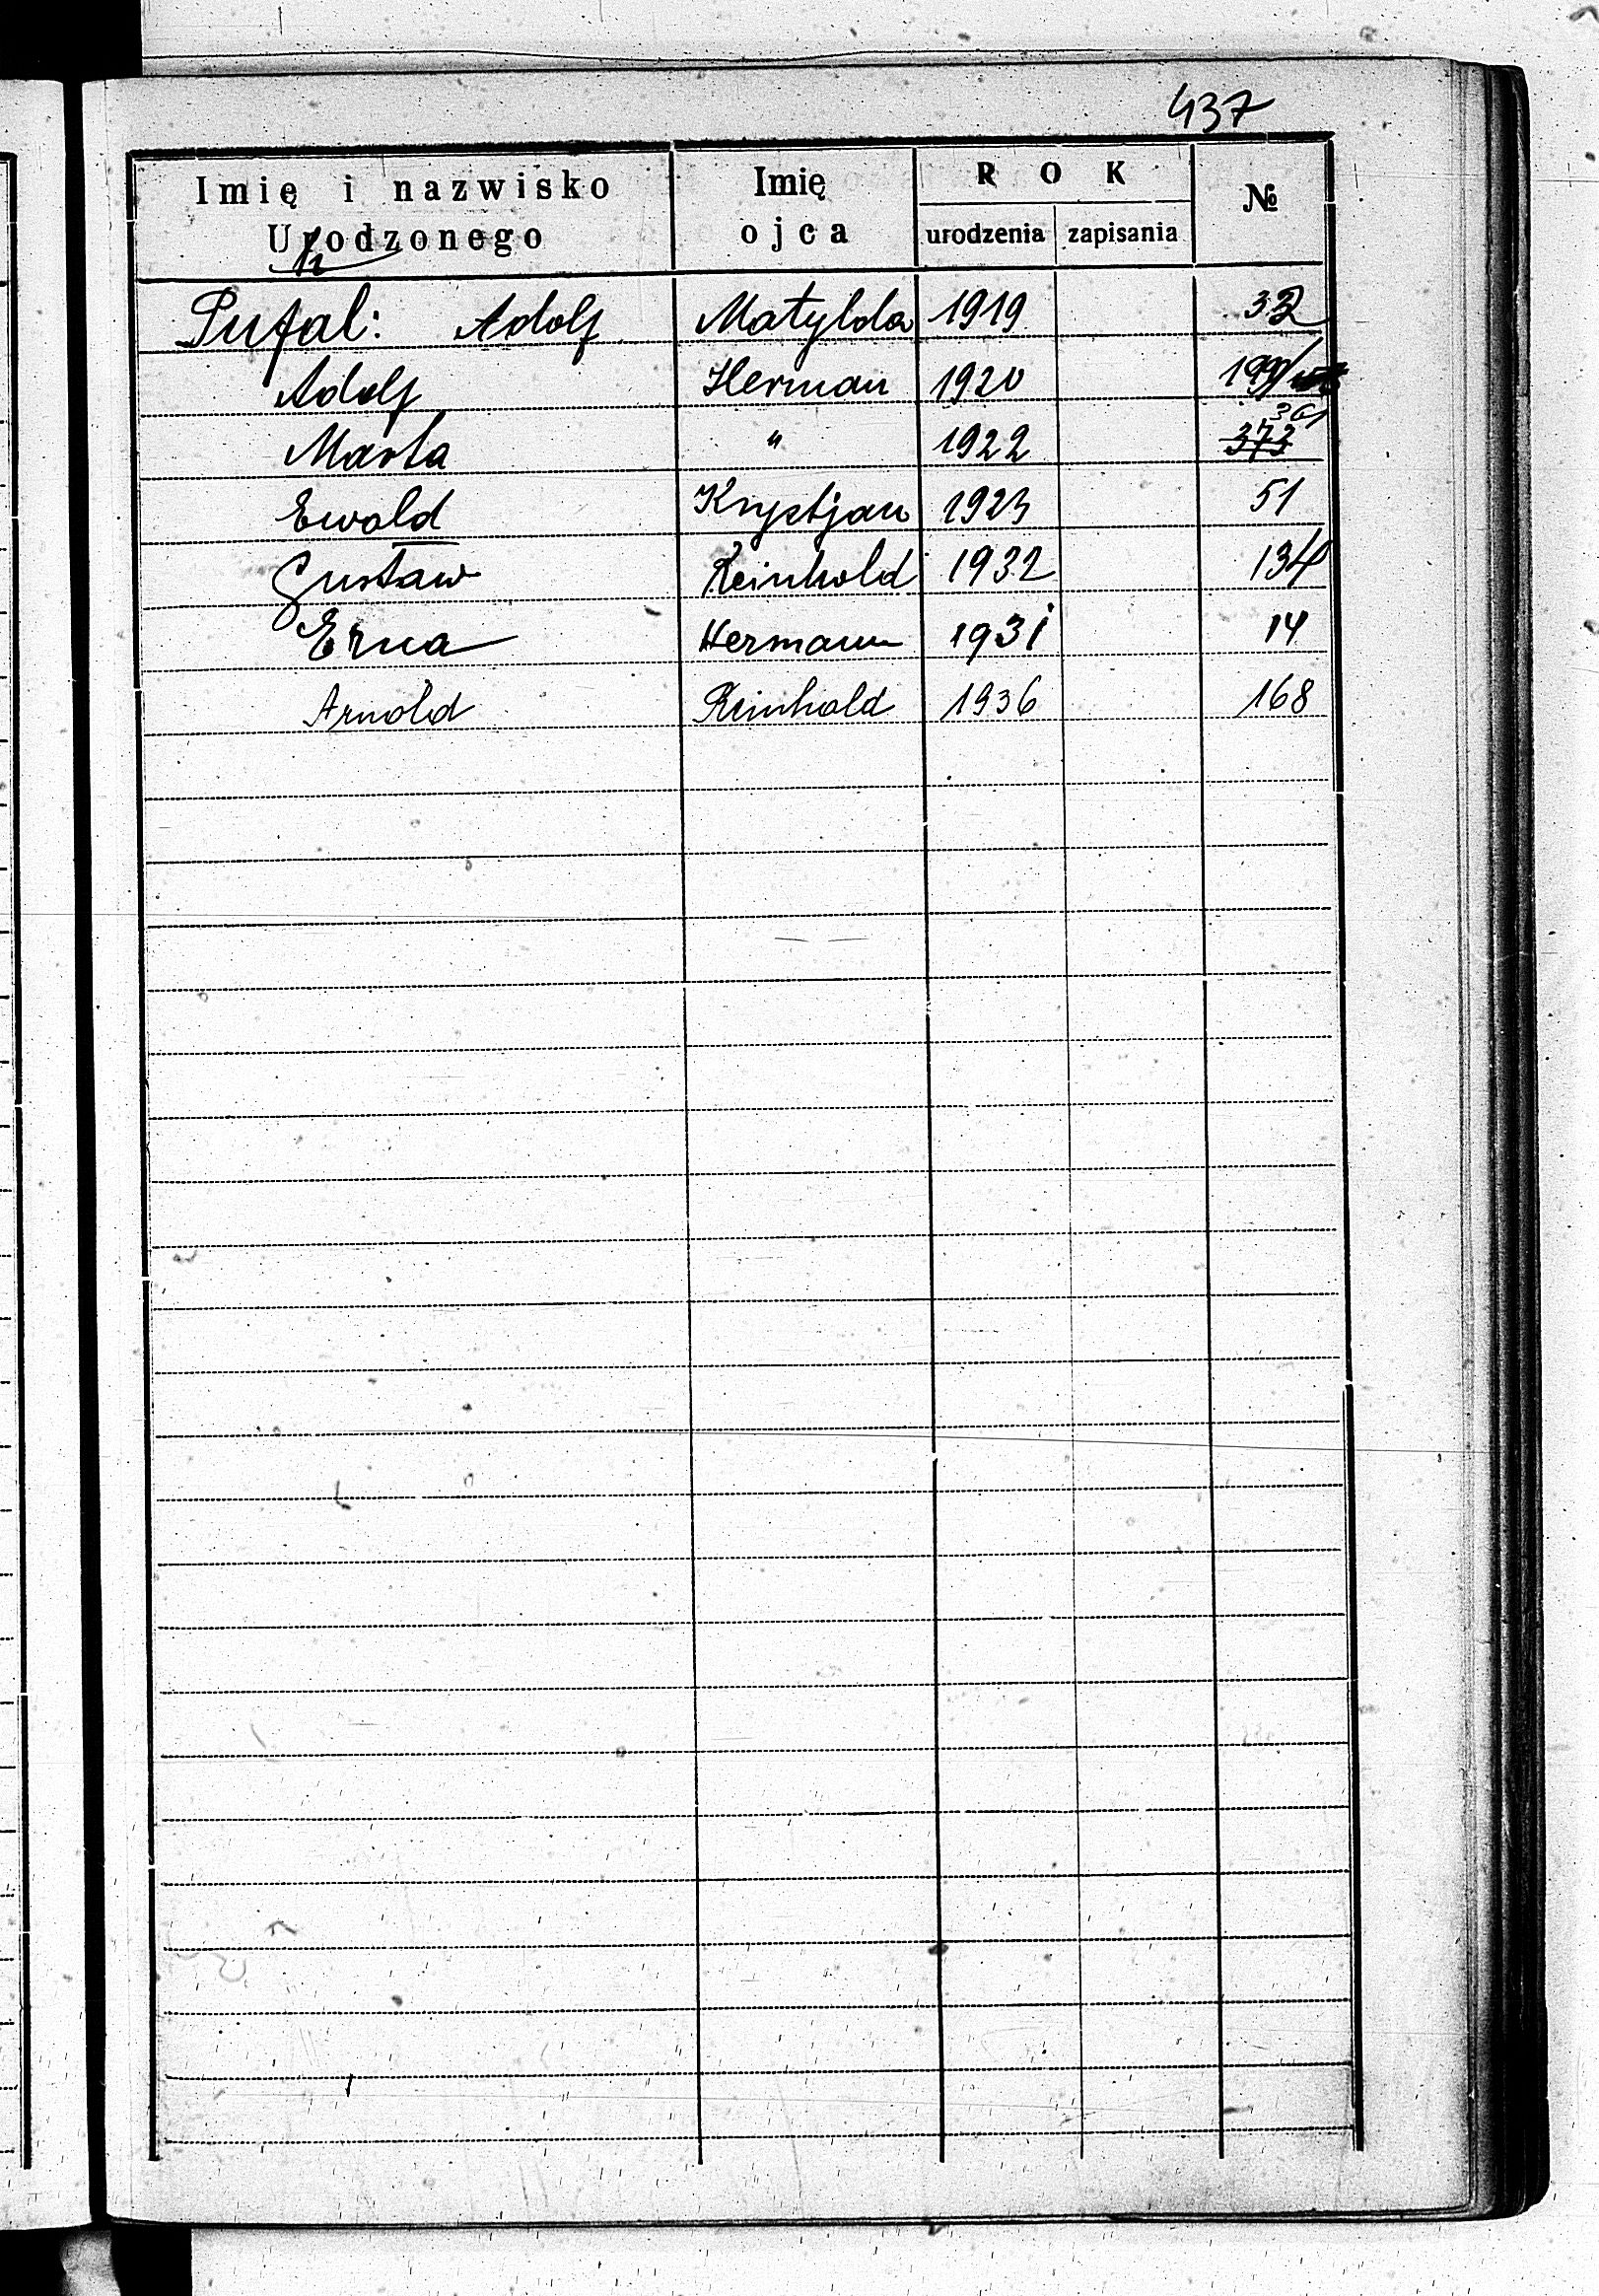 437
Imię i nazwisko Urodzonego Imię ojca ROK urodzenia zapisania №
Pufal: Adolf Matylda 1919 32
Adolf Herman 1920 199/
Marta " 1922 373 361
Ewald Krystjan 1923 51
Gustaw Reinhold 1932 134
Erna Hermann 1931 14
Arnold Reinhold 1936 168